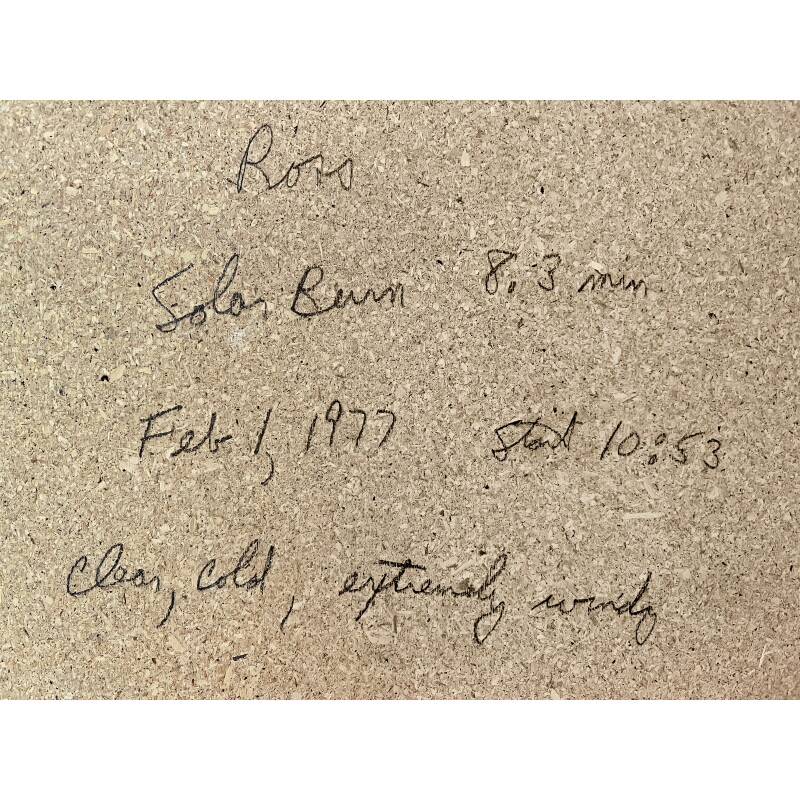 Ross
Solar Burn 8.3 min
Feb 1, 1977 Start 10:53
clear, cold, extremely windy